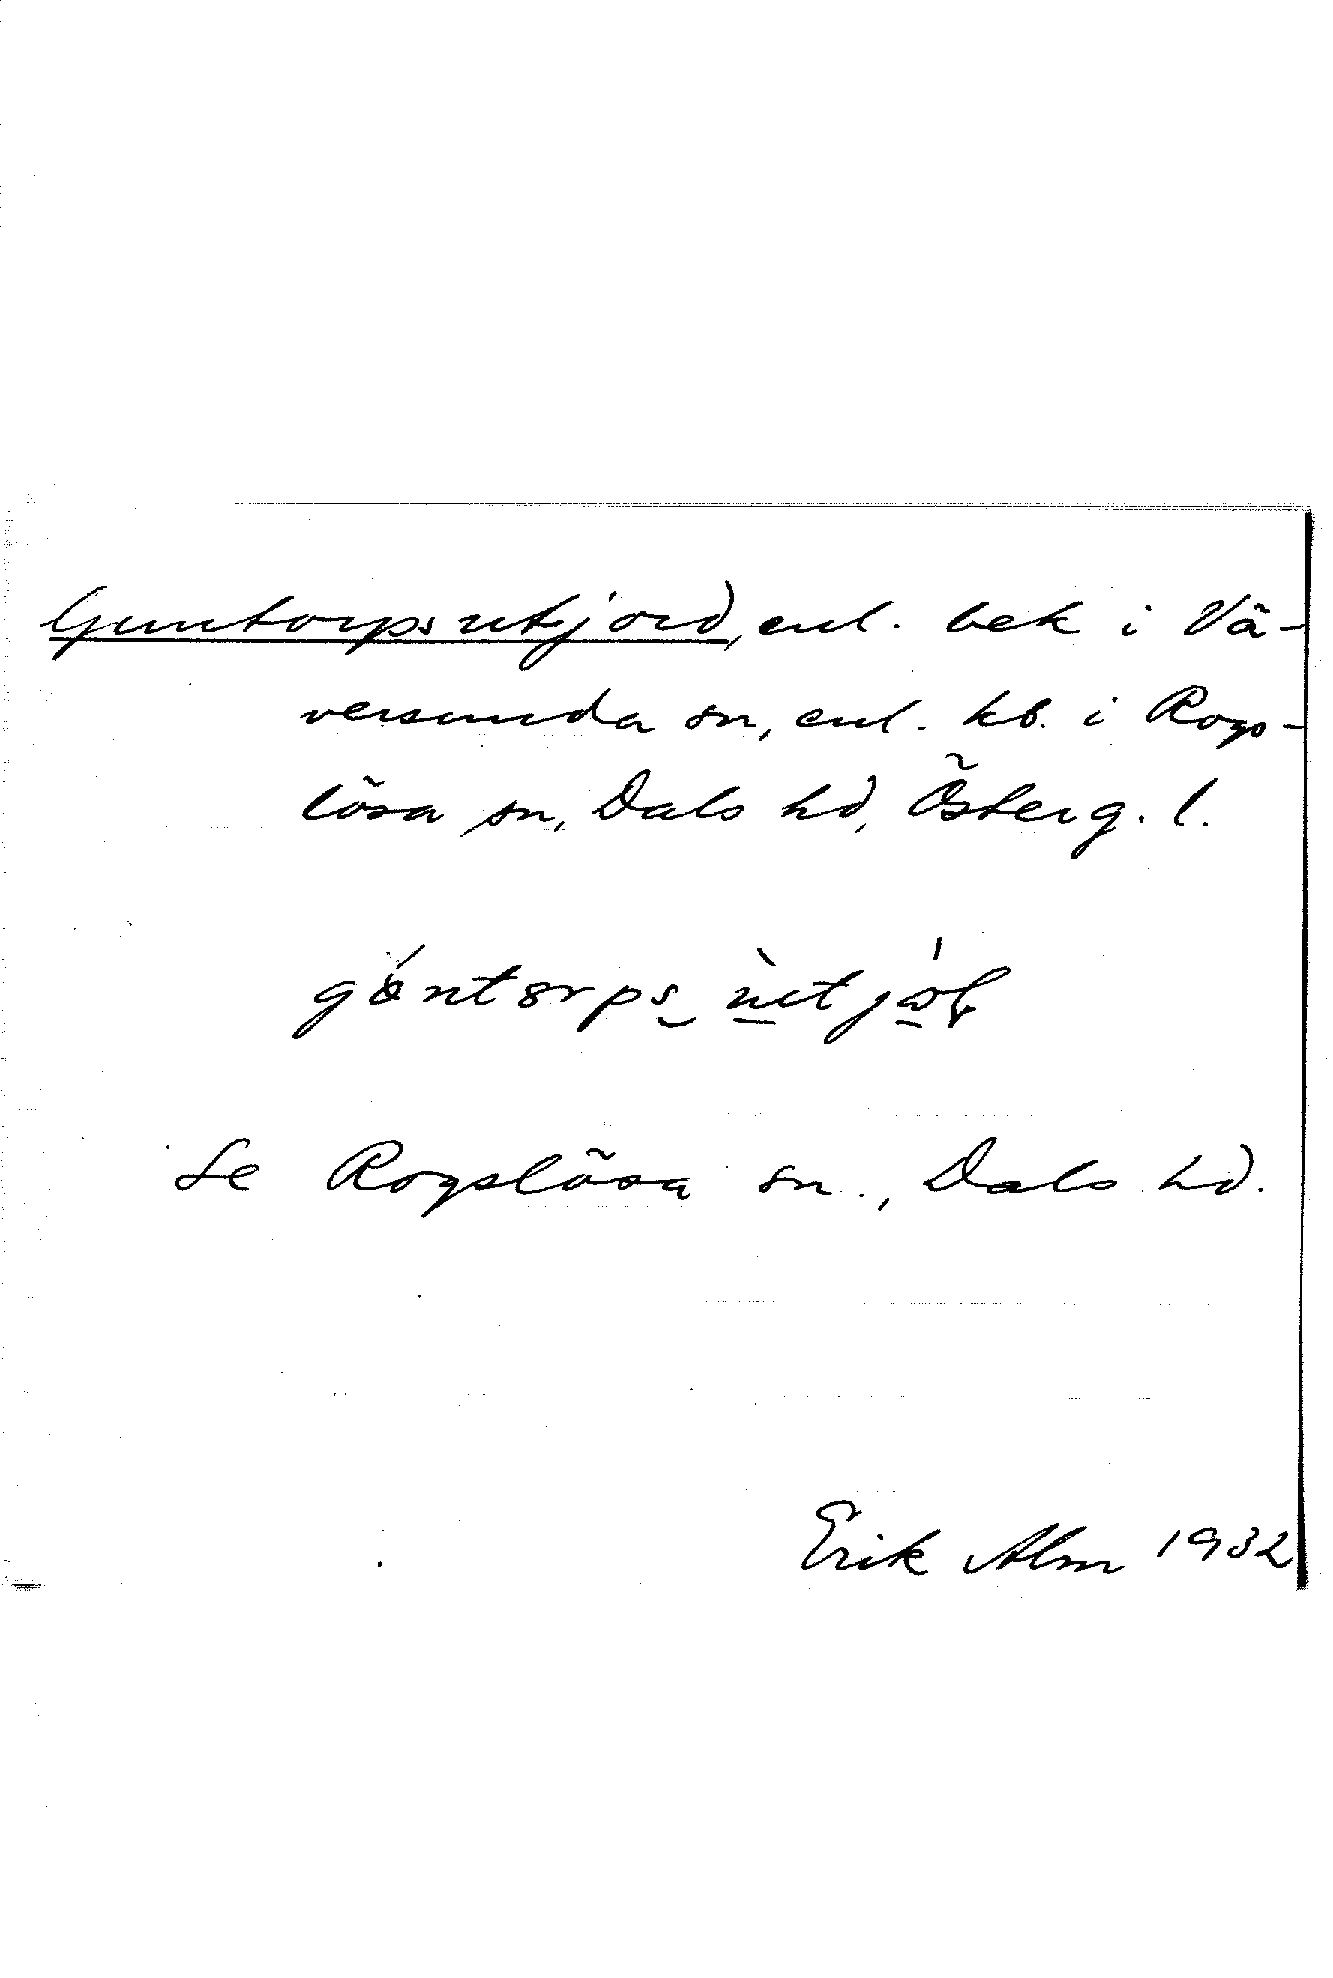 Guntorps utjord, enl. bek i Vä-
versunda sn, enl. kb. i Rogs-
lösa sn, Dals hd, Österg. l.
Se Rogslösa sn., Dals hd.
Erik Alm 1932